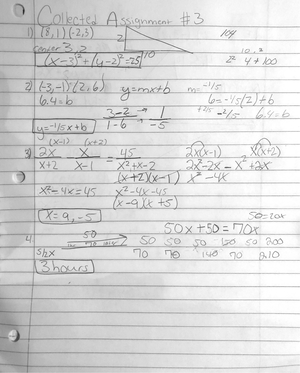 Collected Assignment #3
1) (8,1)(-2,3)
2
10
104
center 3,2
10 · 2
(x-3)²+(y-2)²=25
2² 4+100
2) (-3,-1)(2,6) y=mx+b m=-1/5
6.4=b 6=-1/5(2)+b
3-2 → 1
1-6 -5
+2/5 -2/5 6.4=b
y=-1/5x+b
(x-1) (x+2)
3) 2x/x+2 - x/x-1 = 45/x²+x-2 2x(x-1) x(x+2)
(x+2)(x-1) 2x²-2x-x²+2x
x²-4x
x²-4x=45 x²-4x-45
(x-9)(x+5)
x=9,-5
50=20x
50x+50=70x
4. 50 50 50 50 150 50 200
70 70 140 70 210
3 hours